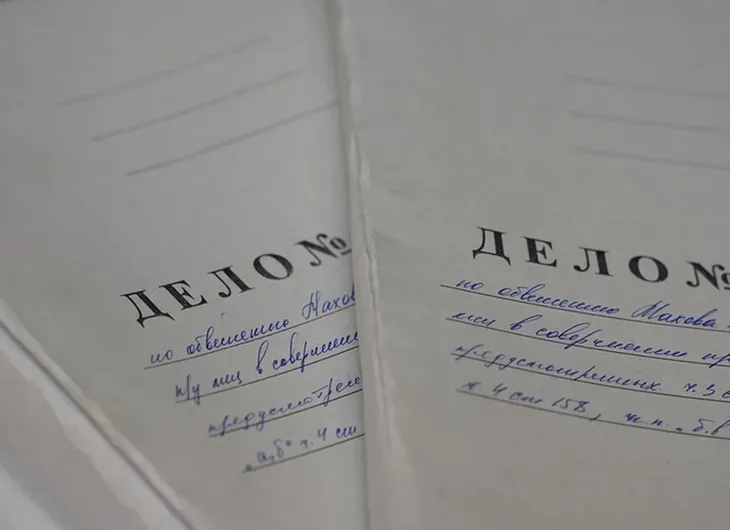 ДЕЛО №
по обвинению Махов
п/у лиц в соверше
предусмотрен
"а,б" ч.4 ст
ДЕЛО №
по обвинению Махова
лиц в совершении пр
предусмотренных ч.3 с
ч.4 ст 158, п.п. "б,в